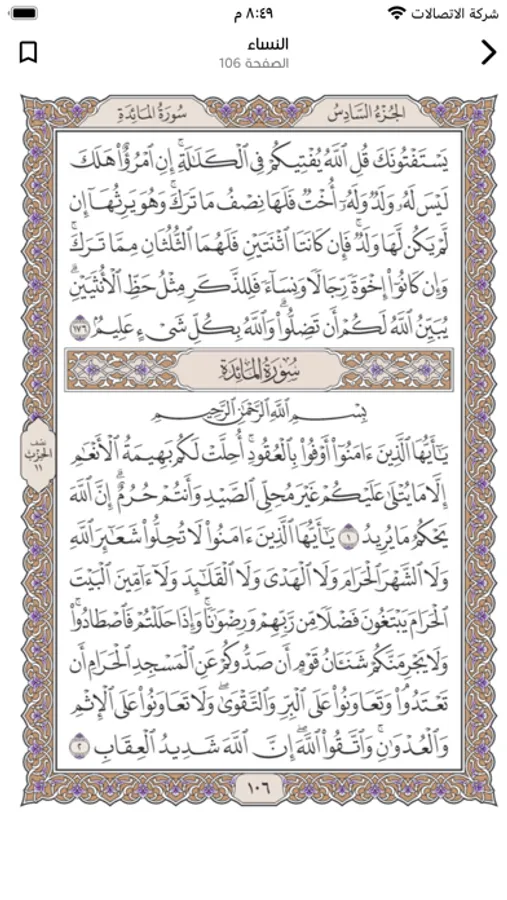 شركة الاتصالات ٨:٤٩ م
النساء
الصفحة 106
الجُزْءُ السَّادِسُ سُورَةُ المَائِدَةِ
يَسْتَفْتُونَكَ قُلِ ٱللَّهُ يُفْتِيكُمْ فِي ٱلْكَلَٰلَةِۚ إِنِ ٱمْرُؤٌاْ هَلَكَ
لَيْسَ لَهُۥ وَلَدٌ وَلَهُۥٓ أُخْتٌ فَلَهَا نِصْفُ مَا تَرَكَۚ وَهُوَ يَرِثُهَآ إِن
لَّمْ يَكُن لَّهَا وَلَدٌۚ فَإِن كَانَتَا ٱثْنَتَيْنِ فَلَهُمَا ٱلثُّلُثَانِ مِمَّا تَرَكَۚ
وَإِن كَانُوٓاْ إِخْوَةً رِّجَالًا وَنِسَآءً فَلِلذَّكَرِ مِثْلُ حَظِّ ٱلْأُنثَيَيْنِۗ
يُبَيِّنُ ٱللَّهُ لَكُمْ أَن تَضِلُّواْۗ وَٱللَّهُ بِكُلِّ شَيْءٍ عَلِيمٌۢ ١٧٦
سُورَةُ المَائِدَةِ
بِسْمِ ٱللَّهِ ٱلرَّحْمَٰنِ ٱلرَّحِيمِ
يَٰٓأَيُّهَا ٱلَّذِينَ ءَامَنُوٓاْ أَوْفُواْ بِٱلْعُقُودِۚ أُحِلَّتْ لَكُم بَهِيمَةُ ٱلْأَنْعَٰمِ
إِلَّا مَا يُتْلَىٰ عَلَيْكُمْ غَيْرَ مُحِلِّي ٱلصَّيْدِ وَأَنتُمْ حُرُمٌۗ إِنَّ ٱللَّهَ
يَحْكُمُ مَا يُرِيدُ ١ يَٰٓأَيُّهَا ٱلَّذِينَ ءَامَنُواْ لَا تُحِلُّواْ شَعَٰٓئِرَ ٱللَّهِ
وَلَا ٱلشَّهْرَ ٱلْحَرَامَ وَلَا ٱلْهَدْيَ وَلَا ٱلْقَلَٰٓئِدَ وَلَآ ءَآمِّينَ ٱلْبَيْتَ
ٱلْحَرَامَ يَبْتَغُونَ فَضْلًا مِّن رَّبِّهِمْ وَرِضْوَٰنًاۚ وَإِذَا حَلَلْتُمْ فَٱصْطَادُواْۚ
وَلَا يَجْرِمَنَّكُمْ شَنَـَٔانُ قَوْمٍ أَن صَدُّوكُمْ عَنِ ٱلْمَسْجِدِ ٱلْحَرَامِ أَن
تَعْتَدُواْۘ وَتَعَاوَنُواْ عَلَى ٱلْبِرِّ وَٱلتَّقْوَىٰۖ وَلَا تَعَاوَنُواْ عَلَى ٱلْإِثْمِ
وَٱلْعُدْوَٰنِۚ وَٱتَّقُواْ ٱللَّهَۖ إِنَّ ٱللَّهَ شَدِيدُ ٱلْعِقَابِ ٢
نصف
الحزب
١١
١٠٦